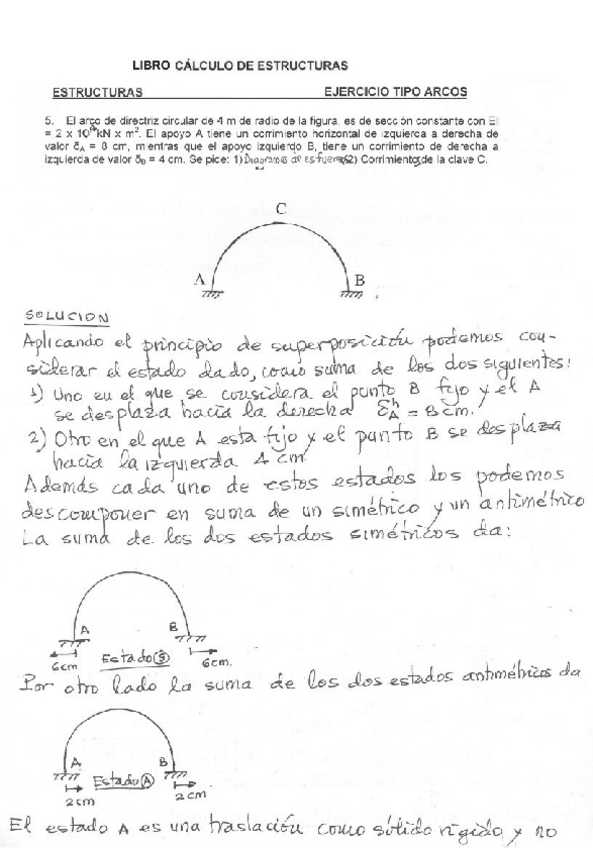 LIBRO CÁLCULO DE ESTRUCTURAS
ESTRUCTURAS EJERCICIO TIPO ARCOS
5. El arco de directriz circular de 4 m de radio de la figura, es de sección constante con EI
= 2 x 10⁴ kN x m². El apoyo A tiene un corrimiento horizontal de izquierda a derecha de
valor δA = 8 cm, mientras que el apoyo izquierdo B, tiene un corrimiento de derecha a
izquierda de valor δB = 4 cm. Se pice: 1) Diagramas de esfuerzos 2) Corrimientos de la clave C.
C
A B
SOLUCION
Aplicando el principio de superposición podemos con-
siderar el estado dado, como suma de los dos siguientes:
1) Uno en el que se considera el punto B fijo y el A
se desplaza hacia la derecha δA^h = 8 cm.
2) Otro en el que A esta fijo y el punto B se desplaza
hacia la izquierda 4 cm
Además cada uno de estos estados los podemos
descomponer en suma de un simétrico y un antimétrico
La suma de los dos estados simétricos da:
A B
6cm Estado S 6cm.
Por otro lado la suma de los dos estados antimétricos da
A B
2cm Estado A 2cm
El estado A es una traslación como sólido rígido y no